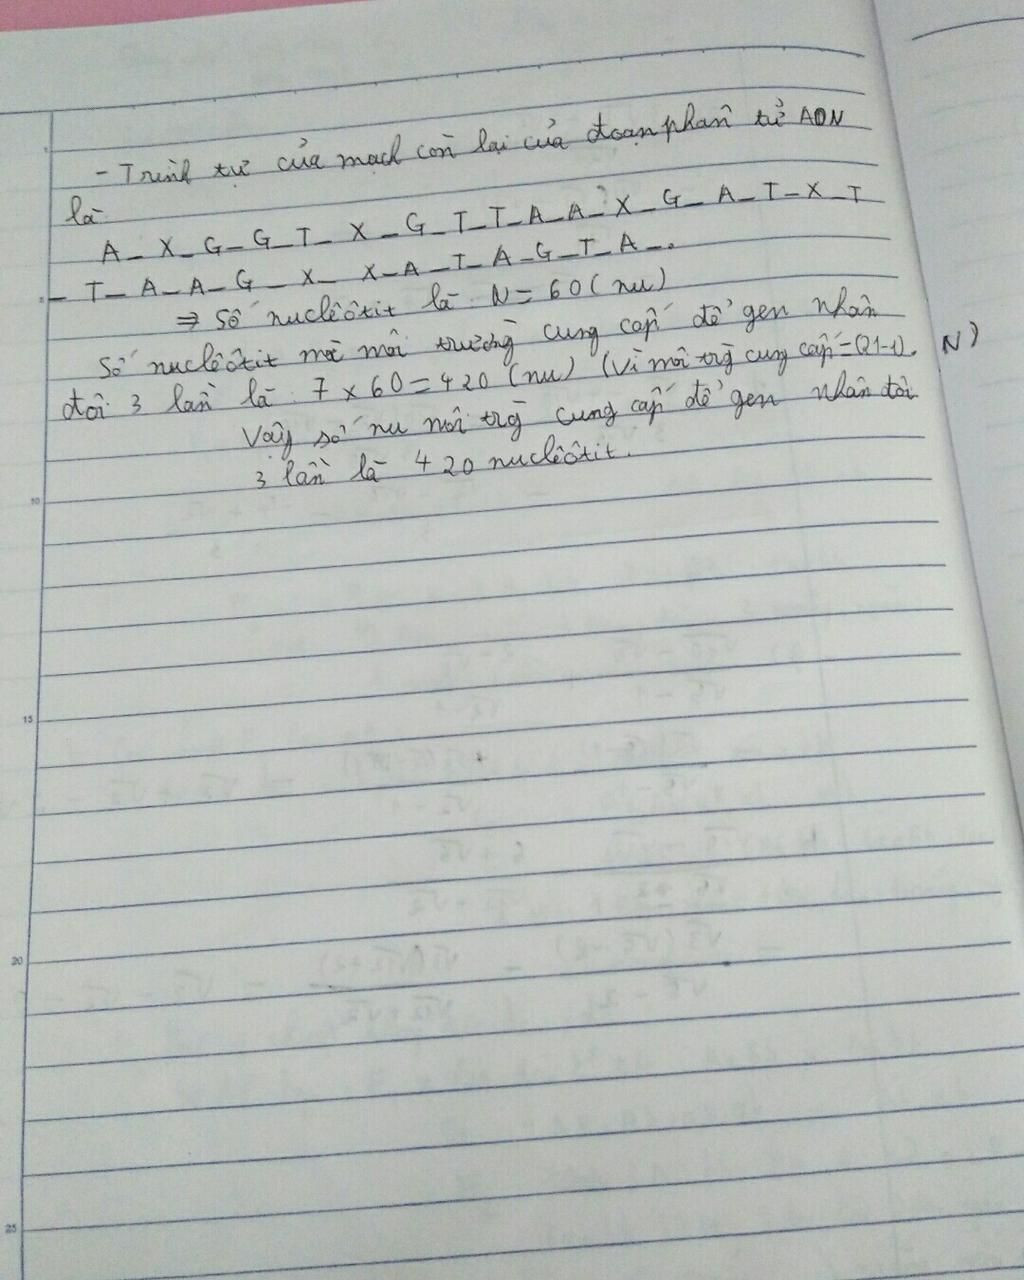 - Trình tự của mạch còn lại của đoạn phân tử ADN
là
A - X - G - G - T - X - G - T - T - A - A - X - G - A - T - X - T
- T - A - A - G - X - X - A - T - A - G - T - A - .
⇒ Số nuclêôtit là : N = 60 ( nu )
Số nuclêôtit mà môi trường cung cấp để gen nhân
đôi 3 lần là : 7 x 60 = 420 (nu) (Vì môi trg cung cấp = (21-1). N)
Vậy số nu môi trg cung cấp để gen nhân đôi
3 lần là 420 nuclêôtit.
5
10
15
20
25